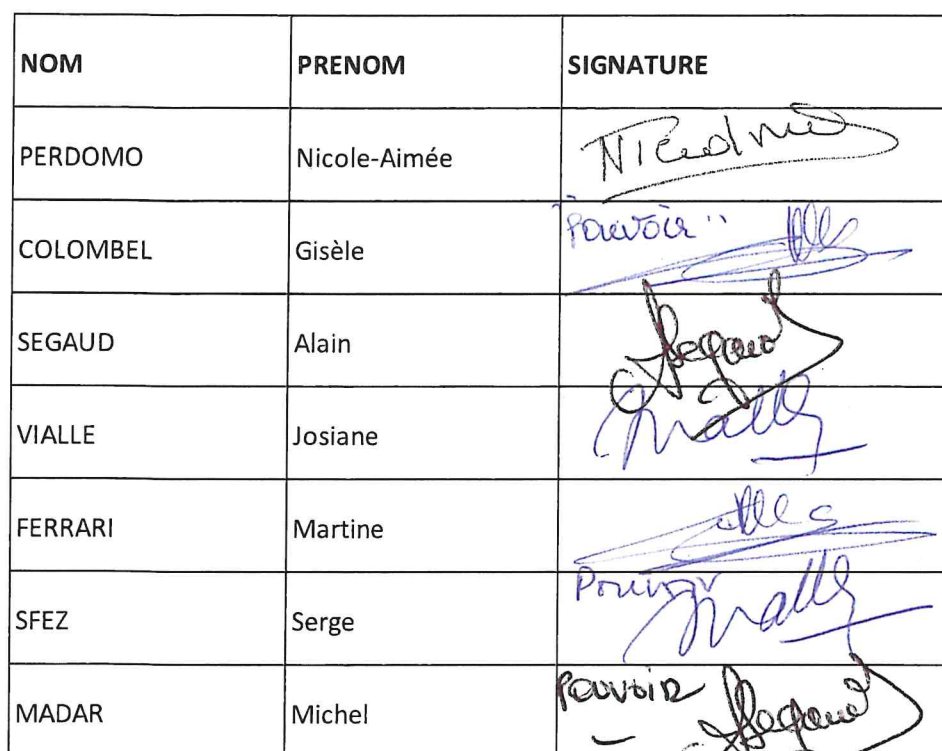 NOM PRENOM SIGNATURE
PERDOMO Nicole-Aimée
COLOMBEL Gisèle "Pouvoir"
SEGAUD Alain Segaud
VIALLE Josiane Vialle
FERRARI Martine
SFEZ Serge Pouvoir Vialle
MADAR Michel Pouvoir Segaud